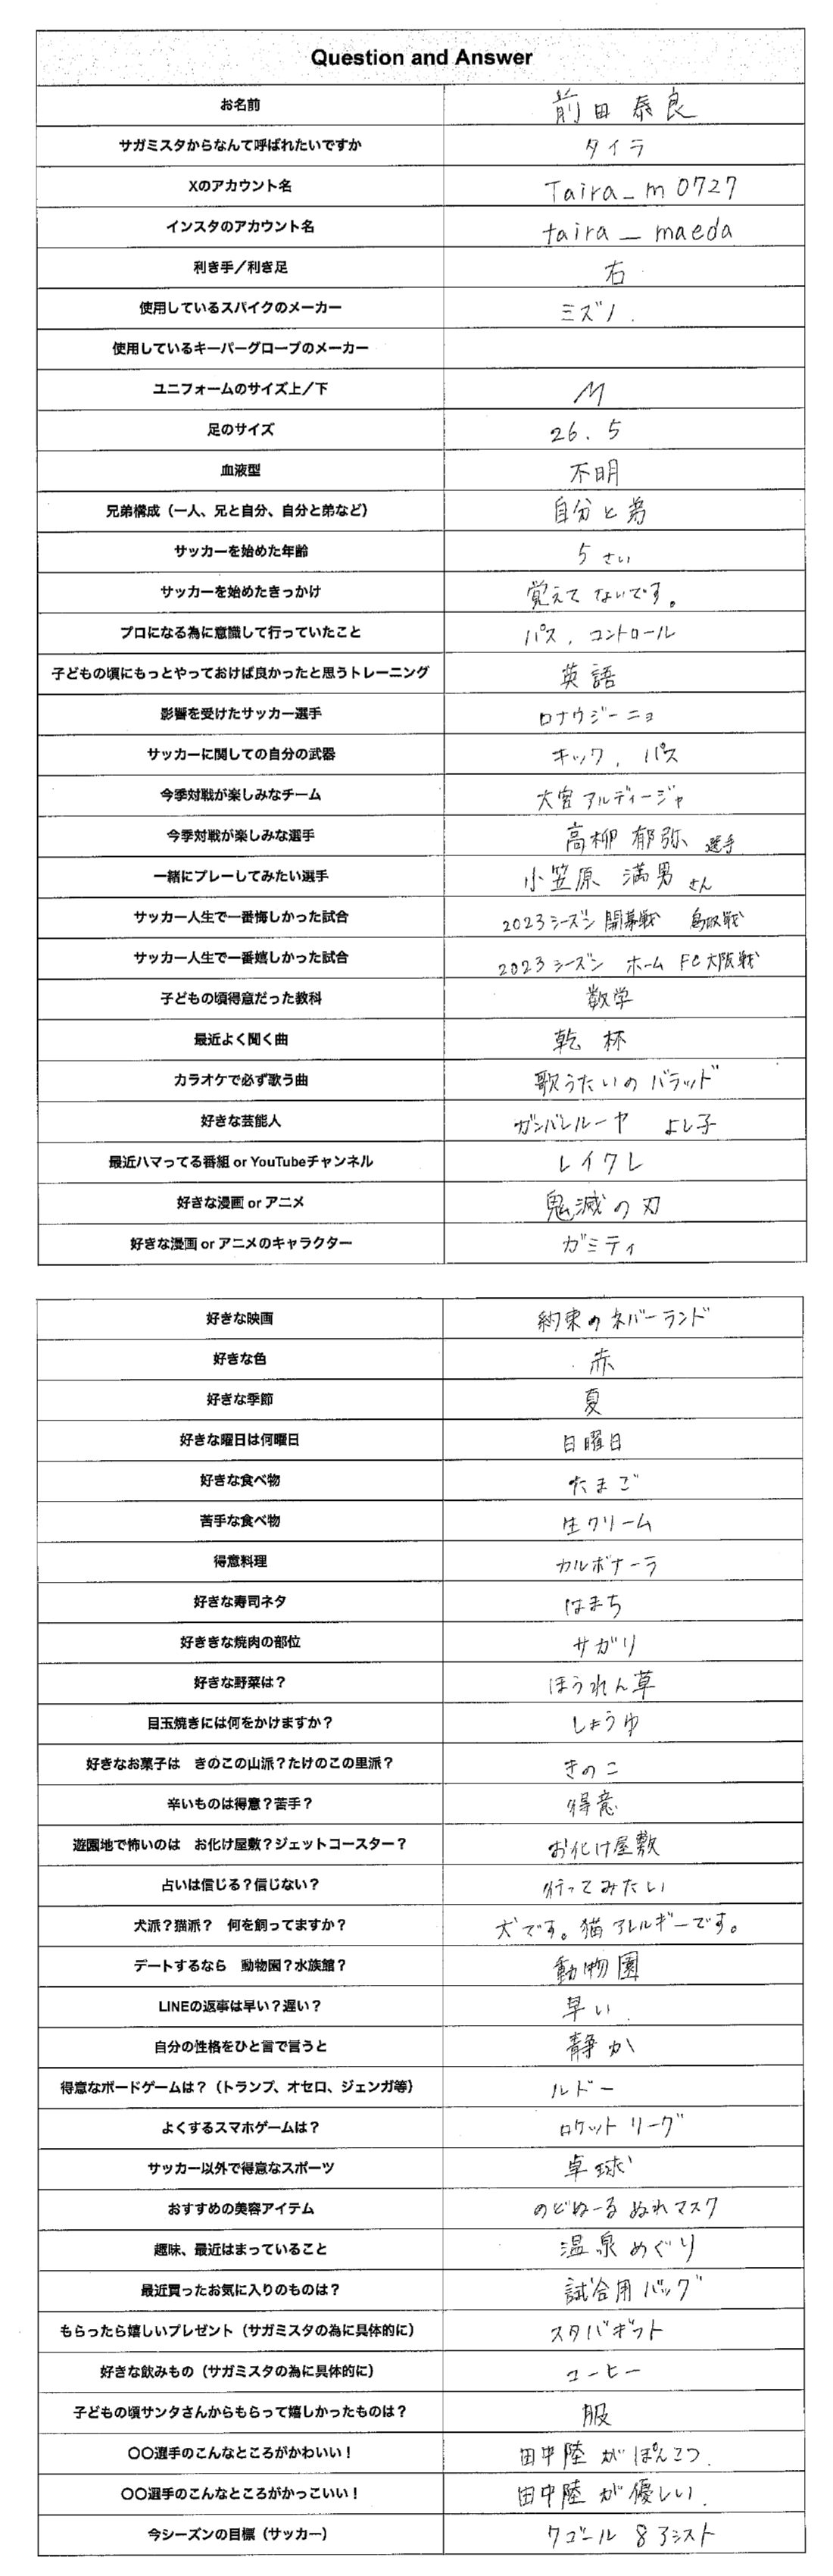 Question and Answer
お名前 前田 泰良
サガミスタからなんて呼ばれたいですか タイラ
Xのアカウント名 Taira_m0727
インスタのアカウント名 taira_maeda
利き手/利き足 右
使用しているスパイクのメーカー ミズノ.
使用しているキーパーグローブのメーカー
ユニフォームのサイズ上/下 M
足のサイズ 26.5
血液型 不明
兄弟構成（一人、兄と自分、自分と弟など） 自分と弟
サッカーを始めた年齢 5さい
サッカーを始めたきっかけ 覚えてないです。
プロになる為に意識して行っていたこと パス, コントロール
子どもの頃にもっとやっておけば良かったと思うトレーニング 英語
影響を受けたサッカー選手 ロナウジーニョ
サッカーに関しての自分の武器 キック, パス
今季対戦が楽しみなチーム 大宮アルディージャ
今季対戦が楽しみな選手 高柳 郁弥 選手
一緒にプレーしてみたい選手 小笠原 満男さん
サッカー人生で一番悔しかった試合 2023シーズン 開幕戦 鳥取戦
サッカー人生で一番嬉しかった試合 2023シーズン ホーム FC大阪戦
子どもの頃得意だった教科 数学
最近よく聞く曲 乾杯
カラオケで必ず歌う曲 歌うたいのバラッド
好きな芸能人 ガンバレルーヤ よし子
最近ハマってる番組 or YouTubeチャンネル レイクレ
好きな漫画 or アニメ 鬼滅の刃
好きな漫画 or アニメのキャラクター ガミティ
好きな映画 約束のネバーランド
好きな色 赤
好きな季節 夏
好きな曜日は何曜日 日曜日
好きな食べ物 たまご
苦手な食べ物 生クリーム
得意料理 カルボナーラ
好きな寿司ネタ はまち
好ききな焼肉の部位 サガリ
好きな野菜は？ ほうれん草
目玉焼きには何をかけますか？ しょうゆ
好きなお菓子は きのこの山派？たけのこの里派？ きのこ
辛いものは得意？苦手？ 得意
遊園地で怖いのは お化け屋敷？ジェットコースター？ お化け屋敷
占いは信じる？信じない？ 行ってみたい
犬派？猫派？ 何を飼ってますか？ 犬です。猫アレルギーです。
デートするなら 動物園？水族館？ 動物園
LINEの返事は早い？遅い？ 早い.
自分の性格をひと言で言うと 静か
得意なボードゲームは？（トランプ、オセロ、ジェンガ等） ルドー
よくするスマホゲームは？ ロケットリーグ
サッカー以外で得意なスポーツ 卓球
おすすめの美容アイテム のどぬーるぬれマスク
趣味、最近はまっていること 温泉めぐり
最近買ったお気に入りのものは？ 試合用バッグ
もらったら嬉しいプレゼント（サガミスタの為に具体的に） スタバギフト
好きな飲みもの（サガミスタの為に具体的に） コーヒー
子どもの頃サンタさんからもらって嬉しかったものは？ 服
〇〇選手のこんなところがかわいい！ 田中陸がぽんこつ.
〇〇選手のこんなところがかっこいい！ 田中陸が優しい.
今シーズンの目標（サッカー） 7ゴール 8アシスト